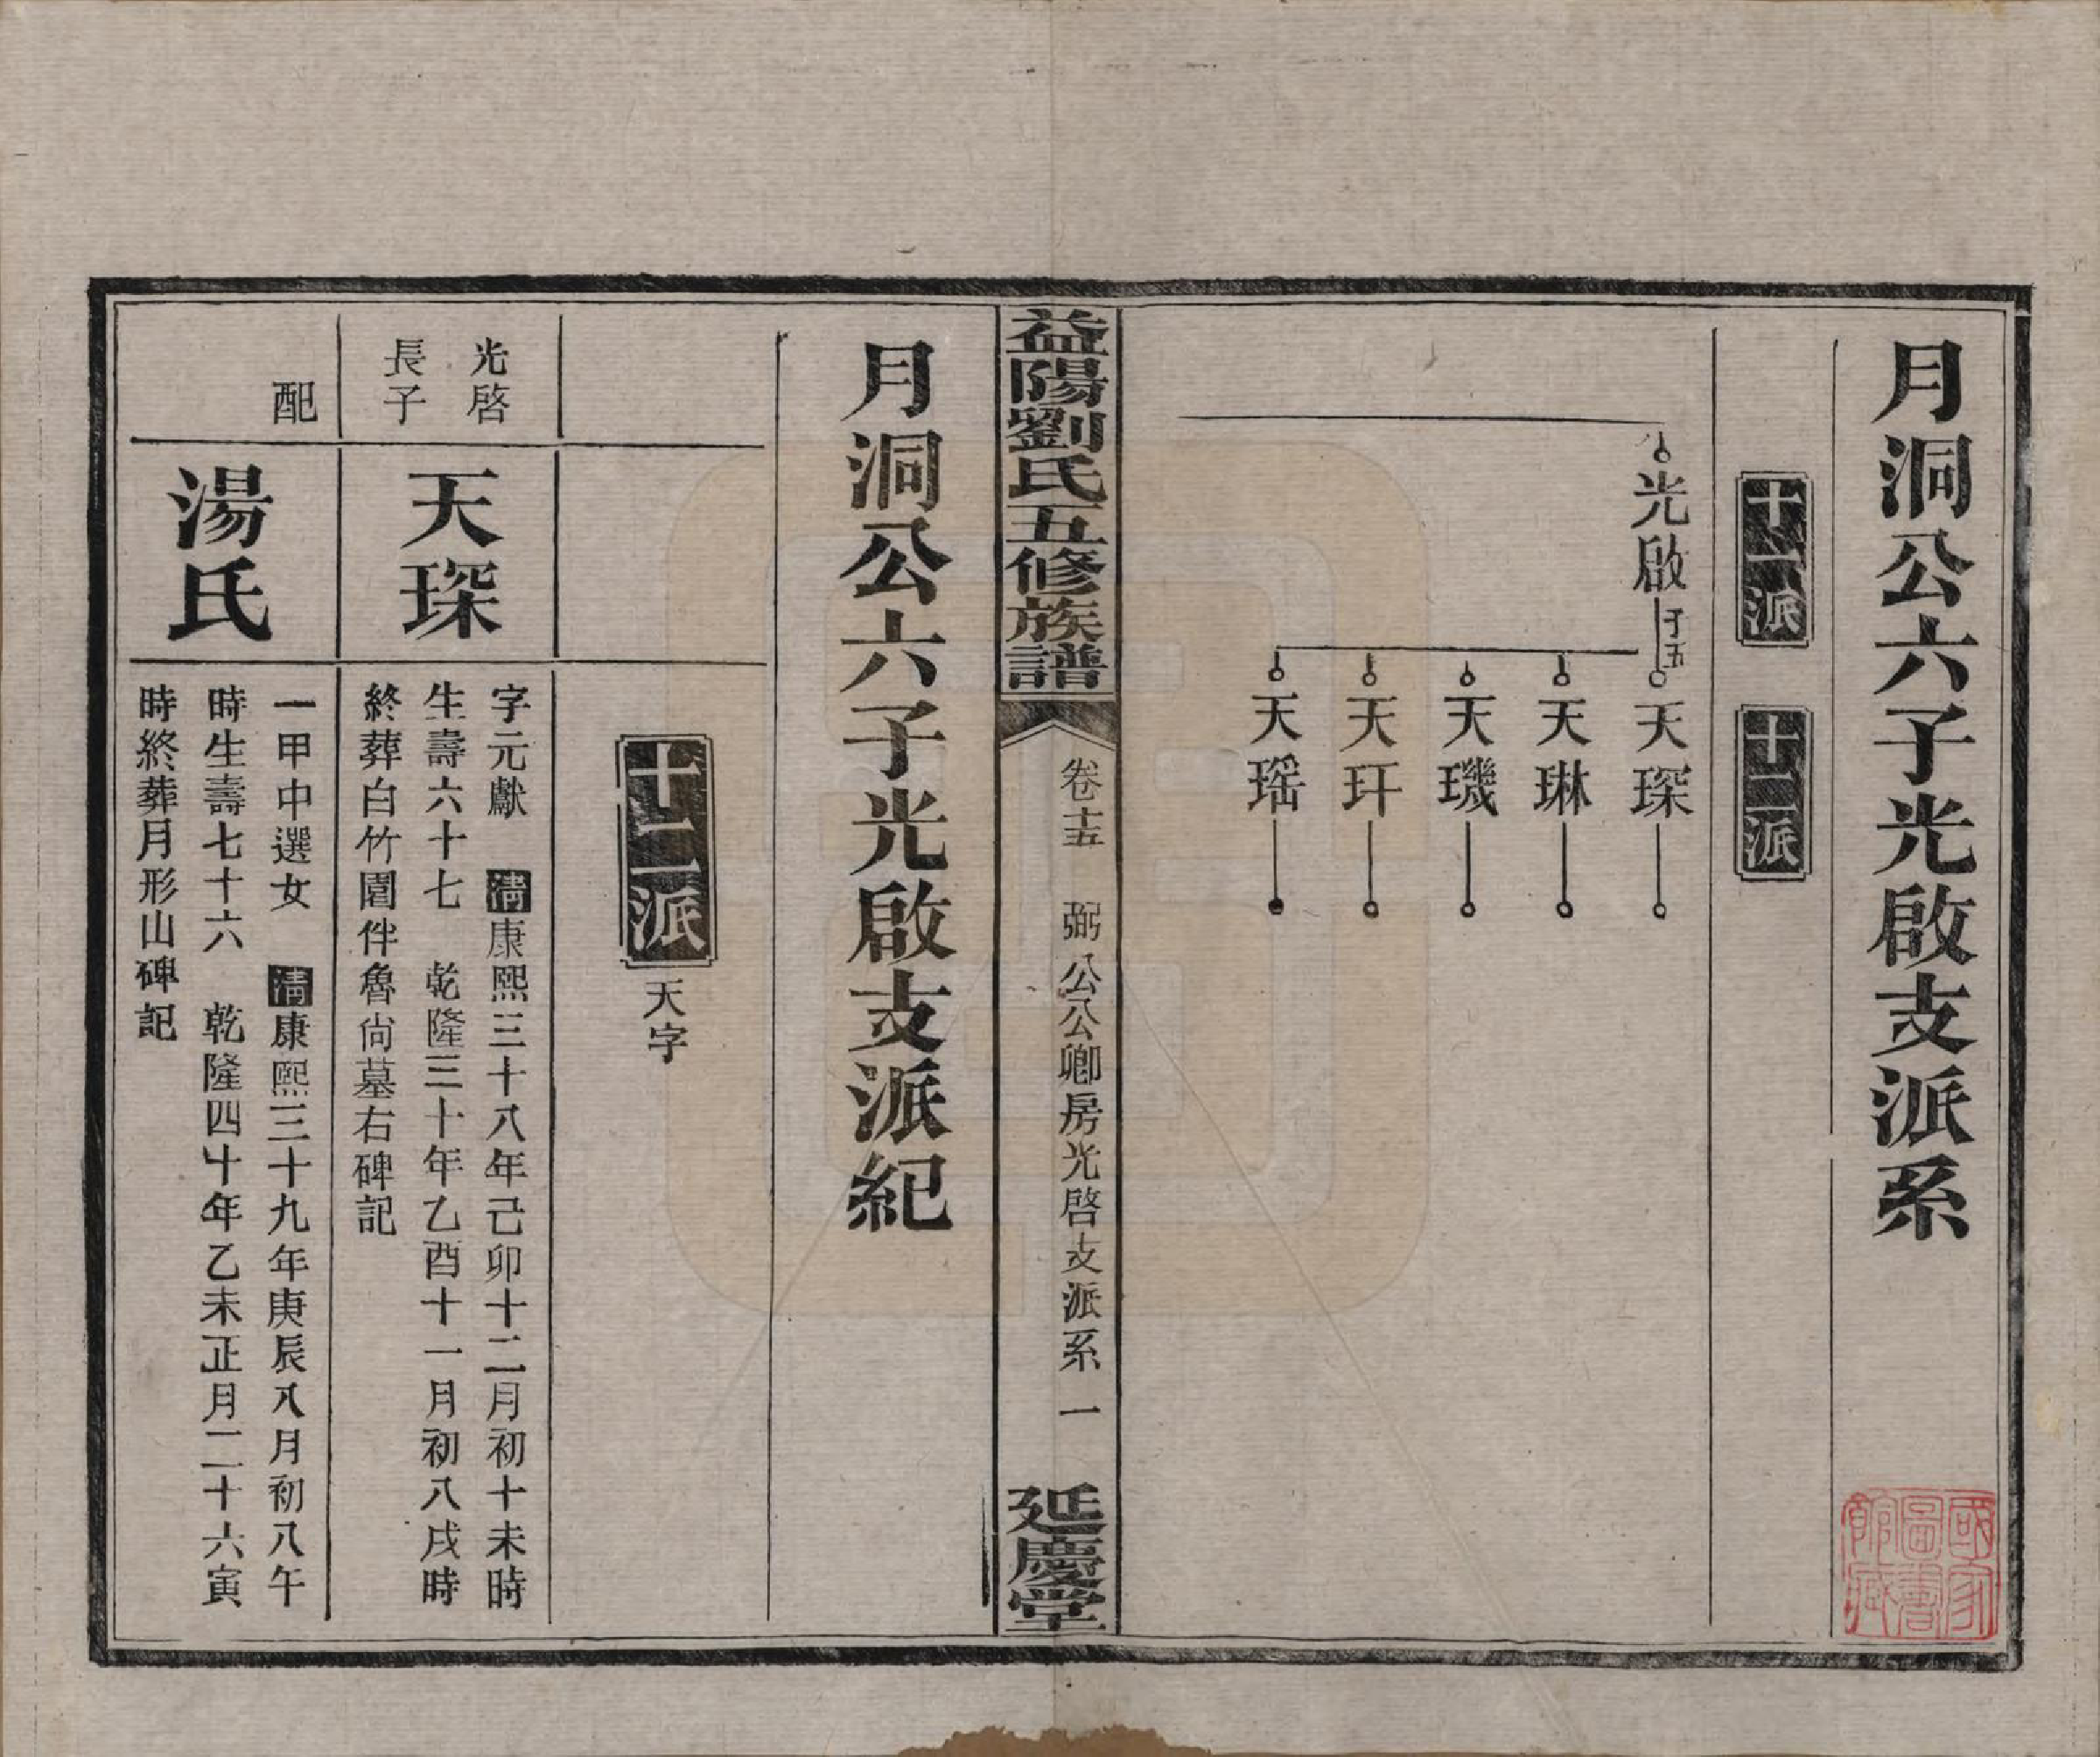 月洞公六子光啟支派系
十一派
十二派
光啟
子五
天琛
天琳
天璣
天玕
天瑶
益陽劉氏五修族譜
卷十五
弼公公卿房光啓支派系
一
延慶堂
月洞公六子光啟支派紀
十二派
天字
光啓
長子
天琛
字元獻　清康熙三十八年己卯十二月初十未時
生壽六十七　乾隆三十年乙酉十一月初八戌時
終葬白竹園伴魯尚墓右碑記
配
湯氏
一甲中選女　清康熙三十九年庚辰八月初八午
時生壽七十六　乾隆四十年乙未正月二十六寅
時終葬月形山碑記
國家
圖書
館藏